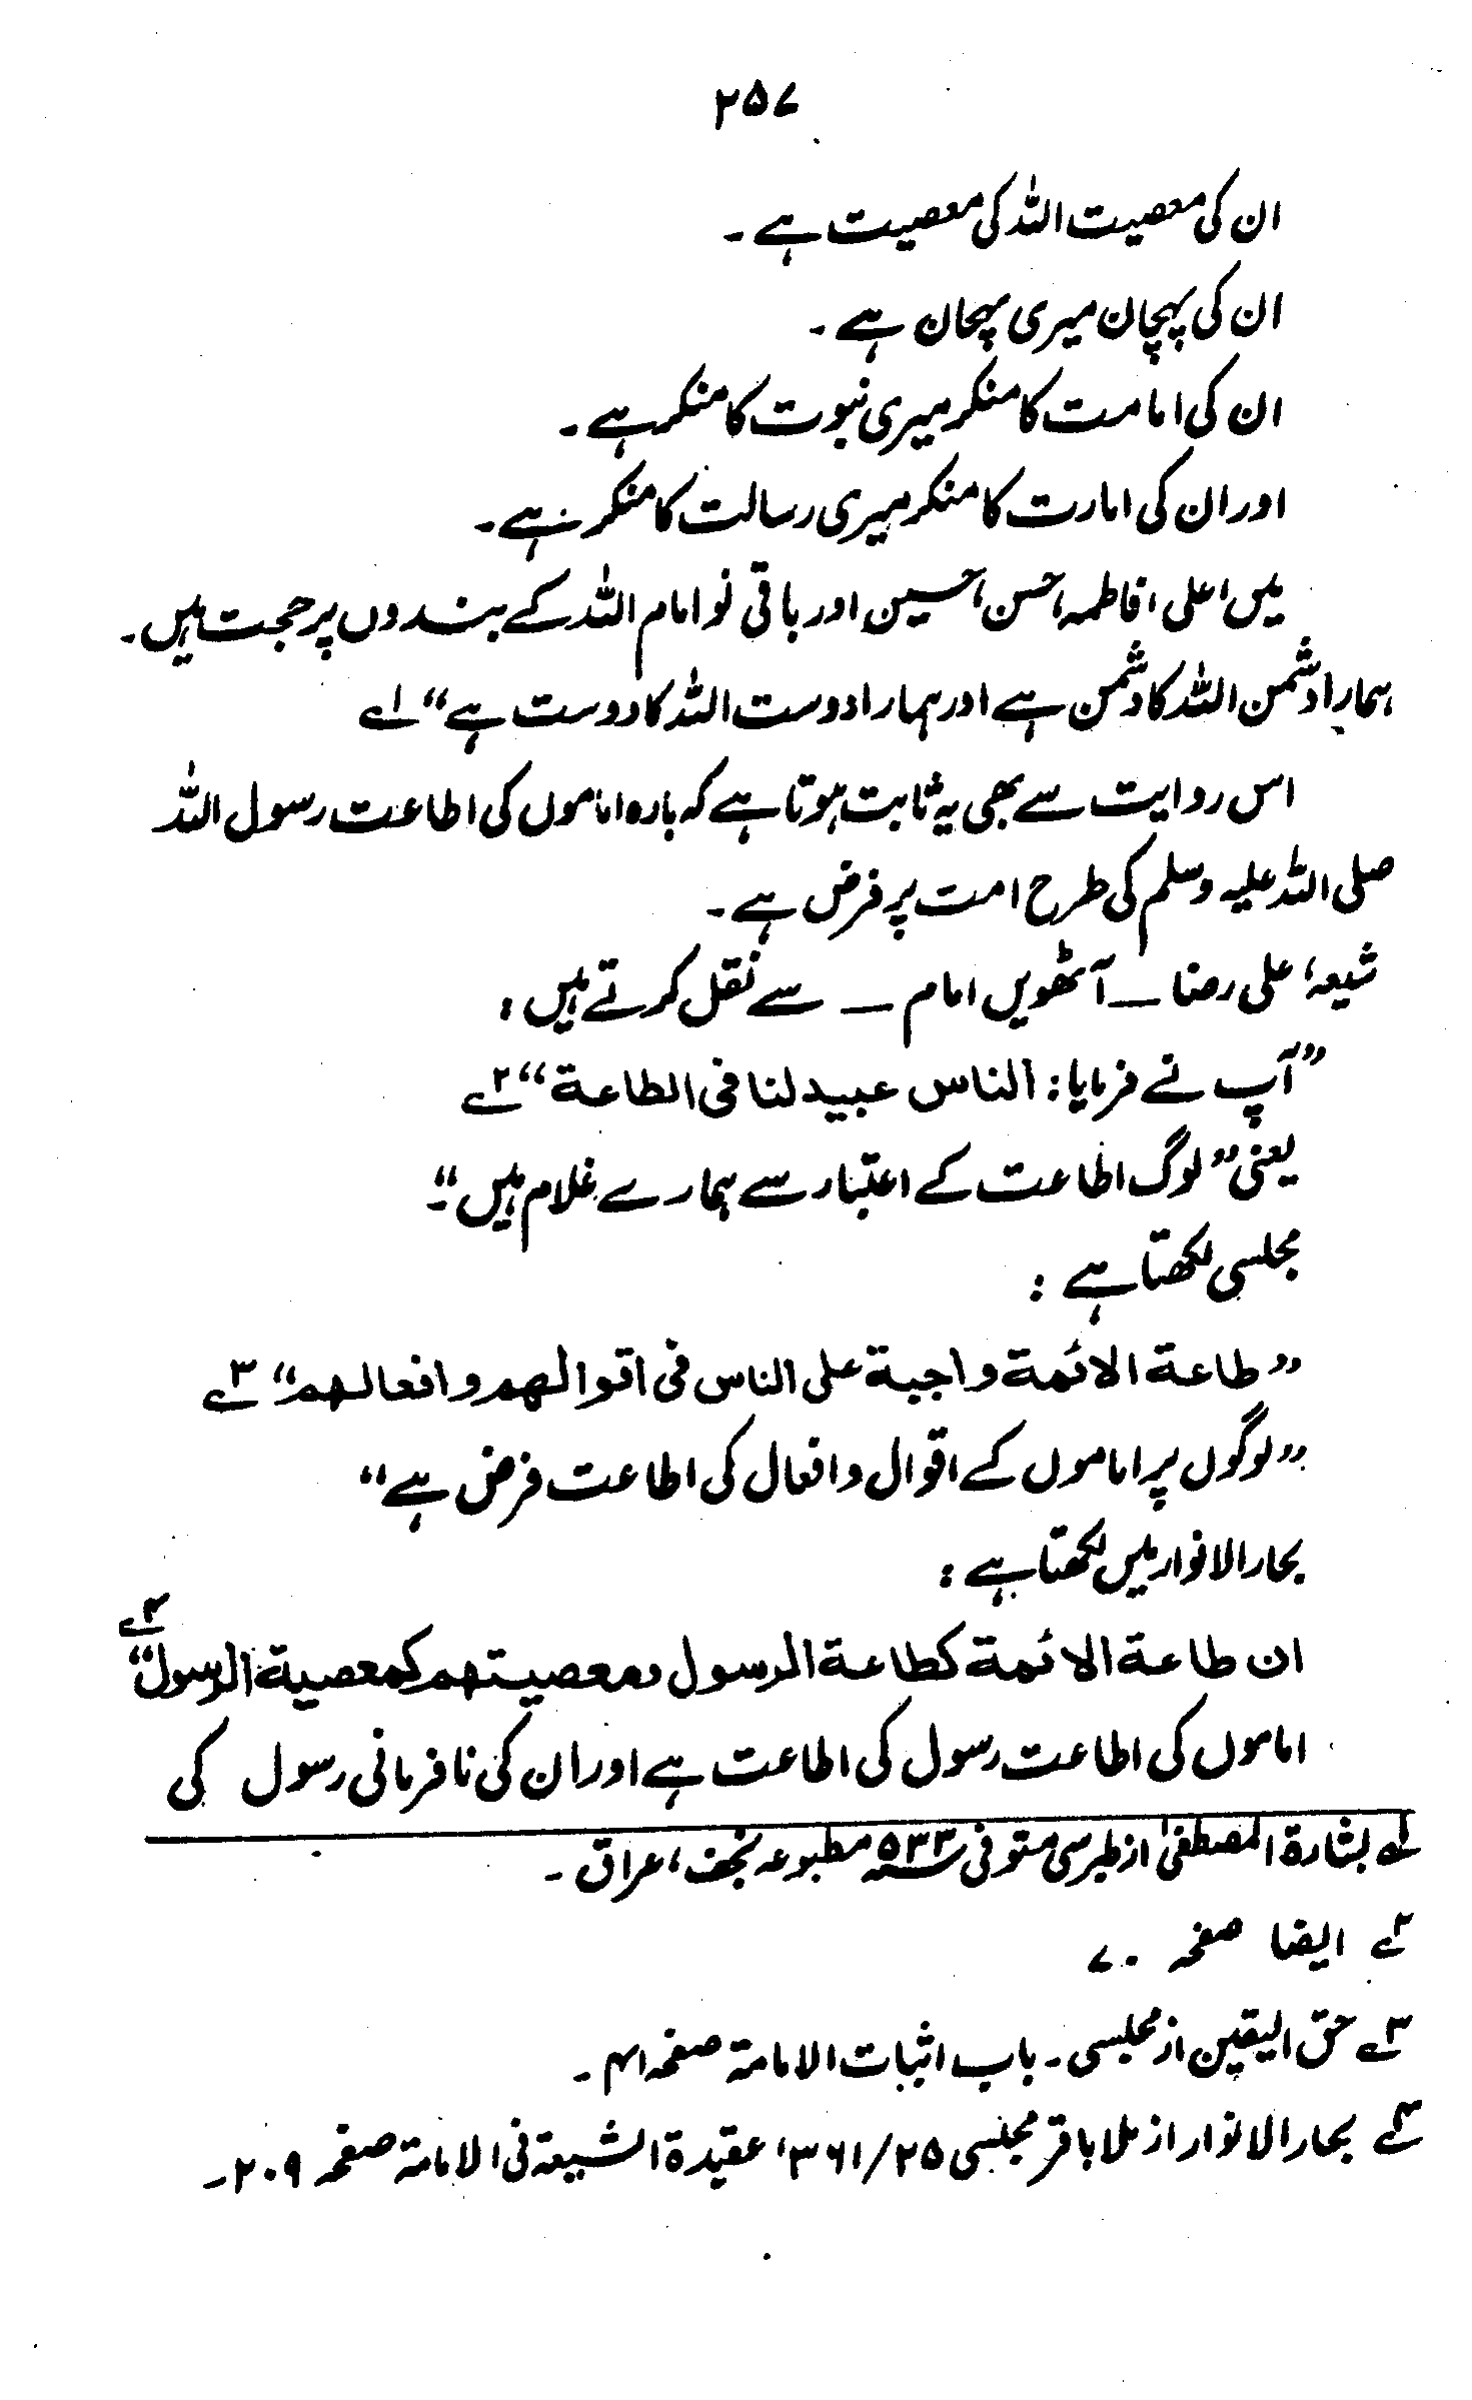 ۲۵۷
ان کی معصیت اللہ کی معصیت ہے۔
ان کی پہچان میری پہچان ہے۔
ان کی امامت کا منکر میری نبوت کا منکر ہے۔
اور ان کی امارت کا منکر میری رسالت کا منکر ہے۔
میں، علی، فاطمہ، حسن، حسین اور باقی نو امام اللہ کے بندوں پر حجت ہیں۔
ہمارا دشمن اللہ کا دشمن ہے اور ہمارا دوست اللہ کا دوست ہے“ ۱ے
اس روایت سے بھی یہ ثابت ہوتا ہے کہ بارہ اماموں کی اطاعت رسول اللہ
صلی اللہ علیہ وسلم کی طرح امت پر فرض ہے۔
شیعہ، علی رضا — آٹھویں امام — سے نقل کرتے ہیں:
”آپ نے فرمایا: الناس عبید لنا فی الطاعة“ ۲ے
یعنی ”لوگ اطاعت کے اعتبار سے ہمارے غلام ہیں“۔
مجلسی لکھتا ہے:
”طاعة الائمة واجبة علی الناس فی اقوالهم وافعالهم“ ۳ے
”لوگوں پر اماموں کے اقوال و افعال کی اطاعت فرض ہے“
بحار الانوار میں لکھتا ہے:
ان طاعة الائمة كطاعة الرسول ومعصيتهم كمعصية الرسول“ ۴ے
اماموں کی اطاعت رسول کی اطاعت ہے اور ان کی نافرمانی رسول کی
۱ے بشارة المصطفیٰ از طبرسی متوفی ۵۳۳ھ مطبوعہ نجف، عراق۔
۲ے ایضا صفحہ ۷۰
۳ے حق الیقین از مجلسی۔ باب اثبات الامامة صفحہ ۴۱۔
۴ے بحار الانوار از ملا باقر مجلسی ۲۵/۳۶۱، عقیدة الشیعة فی الامامة صفحہ ۲۰۹۔